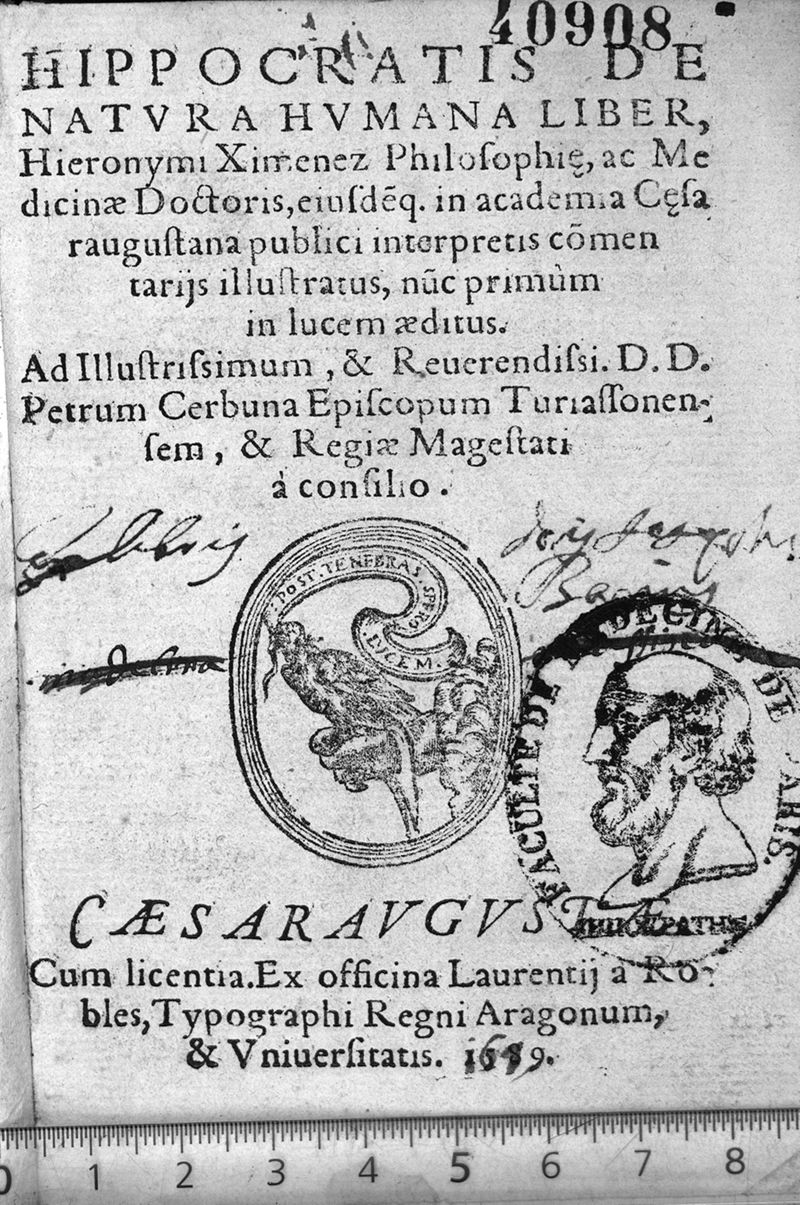 40908
HIPPOCRATIS DE
NATVRA HVMANA LIBER,
Hieronymi Ximenez Philoſophię, ac Me
dicinæ Doctoris, eiuſdẽq. in academia Cęſa
rauguſtana publici interpretis cõmen
tarijs illuſtratus, nũc primùm
in lucem æditus.
Ad Illuſtriſsimum, & Reuerendiſsi. D. D.
Petrum Cerbuna Epiſcopum Turiaſſonen-
ſem, & Regiæ Mageſtati
à conſilio.
POST. TENEBRAS. SPERO.
LVCEM.
FACULTE DE MEDECINE DE PARIS.
CÆSARAVGVSTÆ
Cum licentia. Ex officina Laurentij a Ro-
bles, Typographi Regni Aragonum,
& Vniuerſitatis.
0 1 2 3 4 5 6 7 8